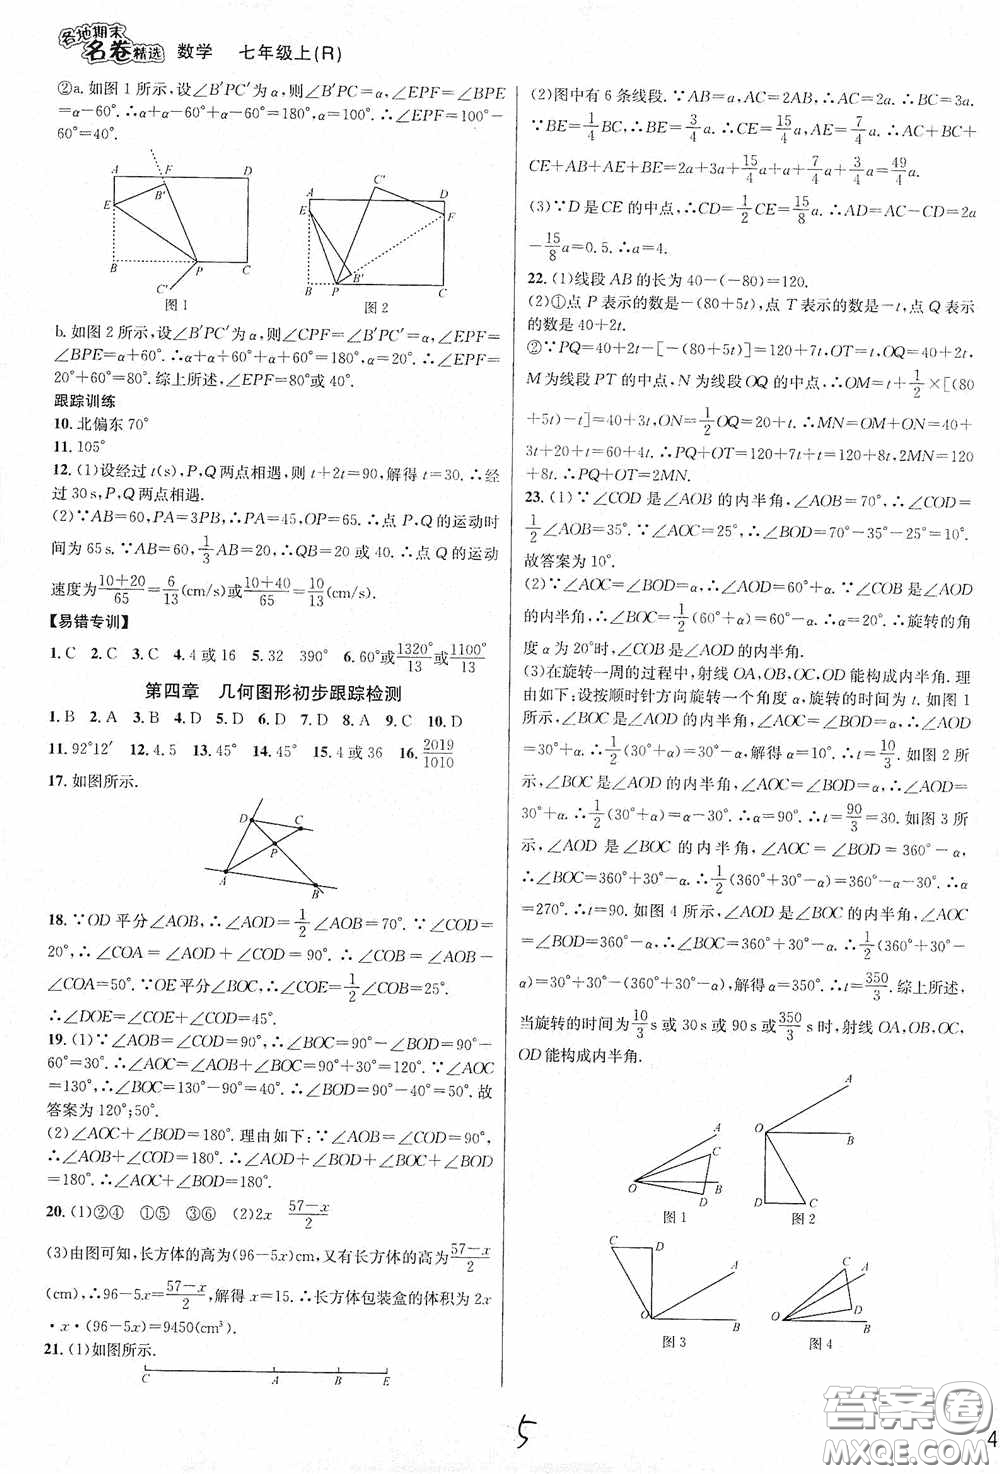 各地期末
名卷精选 数学 七年级上(R)
②a. 如图 1 所示,设∠B′PC′为α,则∠B′PC=α,∠EPF=∠BPE
=α-60°.∴α+α+α-60°=180°,α=100°.∴∠EPF=100°-
60°=40°.
A F D
B′
E
B P C
C′
图 1
C′
A D
E F
B′
B P C
图 2
b. 如图 2 所示,设∠B′PC′为α,则∠CPF=∠C′PF=α,∠EPF=
∠BPE=α+60°.∴α+α+60°+α+60°=180°,α=20°.∴∠EPF=
20°+60°=80°.综上所述,∠EPF=80°或40°.
跟踪训练
10.北偏东70°
11.105°
12.(1)设经过 t(s),P,Q 两点相遇,则 t+2t=90,解得 t=30.∴经
过 30 s,P,Q 两点相遇.
(2)∵AB=60,PA=3PB,∴PA=45,OP=65.∴点 P,Q 的运动时
间为 65 s.∵AB=60,1/3 AB=20,∴QB=20 或 40.∴点 Q 的运动
速度为(10+20)/65=6/13(cm/s)或(10+40)/65=10/13(cm/s).
【易错专训】
1.C 2.C 3.C 4.4 或 16 5.32 390° 6.60°或1320°/13或1100°/13
第四章 几何图形初步跟踪检测
1.B 2.A 3.B 4.D 5.D 6.B 7.B 8.A 9.C 10.D
11.92°12′ 12.4.5 13.45° 14.45° 15.4 或 36 16.2019/1010
17.如图所示.
D C
P
A B
18.∵OD 平分∠AOB,∴∠AOD=1/2∠AOB=70°.∵∠COD=
20°,∴∠COA=∠AOD+∠COD=90°.∴∠COB=∠AOB-
∠COA=50°.∵OE平分∠BOC,∴∠COE=1/2∠COB=25°.
∴∠DOE=∠COE+∠COD=45°.
19.(1)∵∠AOB=∠COD=90°,∴∠BOC=∠COD-∠BOD=90°-
60°=30°.∴∠AOC=∠AOB+∠BOC=90°+30°=120°.∵∠AOC
=130°,∴∠BOC=130°-90°=40°.∴∠BOD=90°-40°=50°.故
答案为 120°;50°.
(2)∠AOC+∠BOD=180°.理由如下:∵∠AOB=∠COD=90°,
∴∠AOB+∠COD=180°.∴∠AOD+∠BOD+∠BOC+∠BOD
=180°.∴∠AOC+∠BOD=180°.
20.(1)②④ ①⑤ ③⑥ (2)2x (57-x)/2
(3)由图可知,长方体的高为(96-5x)cm,又有长方体的高为(57-x)/2
(cm),∴96-5x=(57-x)/2,解得 x=15.∴长方体包装盒的体积为 2x
·x·(96-5x)=9450(cm³).
21.(1)如图所示.
C A B E
(2)图中有 6 条线段.∵AB=a,AC=2AB,∴AC=2a.∴BC=3a.
∵BE=1/4 BC,∴BE=3/4 a.∴CE=15/4 a,AE=7/4 a.∴AB+AC+BC+
CE+AB+AE+BE=2a+3a+15/4 a+a+7/4 a+3/4 a=49/4 a.
(3)∵D 是 CE 的中点,∴CD=1/2 CE=15/8 a.∴AD=AC-CD=2a
-15/8 a=0.5.∴a=4.
22.(1)线段 AB 的长为 40-(-80)=120.
(2)①点 P 表示的数是-(80+5t),点 T 表示的数是-t,点 Q 表示
的数是 40+2t.
②∵PQ=40+2t-[-(80+5t)]=120+7t,OT=t,OQ=40+2t,
M 为线段 PT 的中点,N 为线段 OQ 的中点,∴OM=t+1/2×[(80
+5t)-t]=40+3t,ON=1/2 OQ=20+t.∴MN=OM+ON=40+
3t+20+t=60+4t.∴PQ+OT=120+7t+t=120+8t,2MN=120
+8t.∴PQ+OT=2MN.
23.(1)∵∠COD 是∠AOB 的内半角,∠AOB=70°,∴∠COD=
1/2∠AOB=35°.∵∠AOC=25°,∴∠BOD=70°-35°-25°=10°.
故答案为 10°.
(2)∵∠AOC=∠BOD=α,∴∠AOD=60°+α.∵∠COB是∠AOD
的内半角,∴∠BOC=1/2(60°+α)=60°-α.∴α=20°.∴旋转的角
度α为20°时,∠COB是∠AOD的内半角.
(3)在旋转一周的过程中,射线 OA,OB,OC,OD 能构成内半角.理
由如下:设按顺时针方向旋转一个角度α,旋转的时间为 t.如图 1
所示,∠BOC是∠AOD的内半角,∠AOC=∠BOD=α.∴∠AOD
=30°+α.∴1/2(30°+α)=30°-α,解得α=10°.∴t=10/3.如图 2 所
示,∠BOC是∠AOD 的内半角,∠AOC=∠BOD=α,∴∠AOD=
30°+α.∴1/2(30°+α)=α-30°.∴α=90°.∴t=90/3=30.如图 3 所
示,∠AOD 是∠BOC 的内半角,∠AOC=∠BOD=360°-α,
∴∠BOC=360°+30°-α.∴1/2(360°+30°-α)=360°-α-30°.∴α=
270°.∴t=90.如图 4 所示,∠AOD 是∠BOC 的内半角,∠AOC
=∠BOD=360°-α,∴∠BOC=360°+30°-α.∴1/2(360°+30°-
α)=30°+30°-(360°+30°-α),解得α=350°.∴t=350/3.综上所述,
当旋转的时间为10/3 s 或 30 s 或 90 s 或350/3 s 时,射线 OA,OB,OC,
OD能构成内半角.
A
C
O B
D
图 1
A
O B
D C
图 2
C D
A
O B
图 3
C A
D
O B
图 4
5
答案圈
MXQE.COM
4